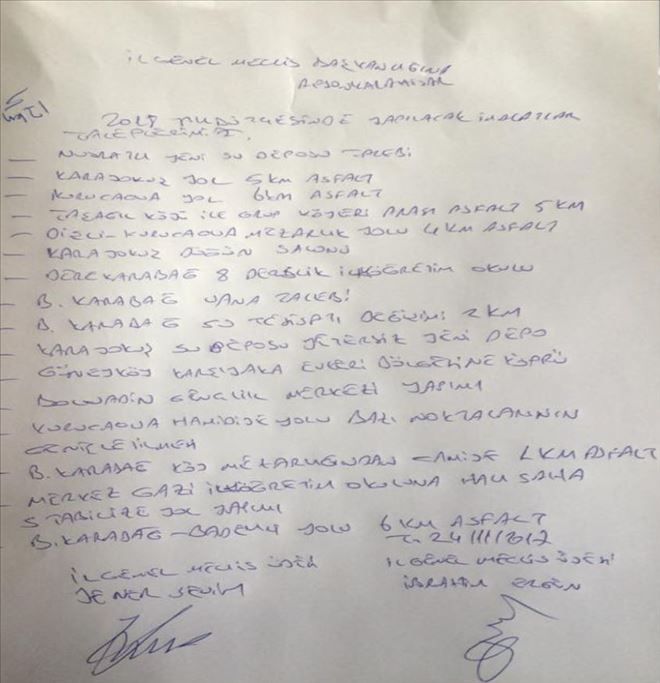 İL GENEL MECLİS BAŞKANLIĞINA
AFYONKARAHİSAR
2018 YILI BÜTÇESİNDE YAPILACAK İMALATLAR
TALEPLERİMİZ.
— YENİ SU DEPOSU TALEBİ
— KARAYOKUŞ YOL 5 KM ASFALT
— KURUCAOVA YOL 6 KM ASFALT
— TAŞAĞIL KÖYÜ İLE GRUP KÖYLERİ ARASI ASFALT 5 KM
— DİŞLİ-KURUCAOVA MEZARLIK YOLU 4 KM ASFALT
— KARAYOKUŞ DÜĞÜN SALONU
— DEREKARABAĞ 8 DERSLİK İLKÖĞRETİM OKULU
— B. KARABAĞ VANA TALEBİ
— B. KARABAĞ SU DEĞİŞİMİ 2 KM
— KARAYOKUŞ SU DEPOSU YETERSİZ YENİ DEPO
— GÜNEYKÖY KARŞIYAKA EVLERİ BÖLGESİNE KÖPRÜ
— BOLVADİN GENÇLİK MERKEZİ YAPIMI
— KURUCAOVA HAMİDİYE YOLU BAZI NOKTALARININ
GENİŞLETİLMESİ
— B. KARABAĞ KÖY MEZARLIĞINDAN CAMİYE KM ASFALT
— MERKEZ GAZİ İLKÖĞRETİM OKULUNA HALI SAHA
— STABİLİZE YOL YAPIMI
— B. KARABAĞ-BADEMLİ YOLU 6 KM ASFALT
24/11/2017
İL GENEL MECLİS ÜYESİ İL GENEL MECLİS ÜYESİ
ŞENER SEVİM İBRAHİM ERGÜN